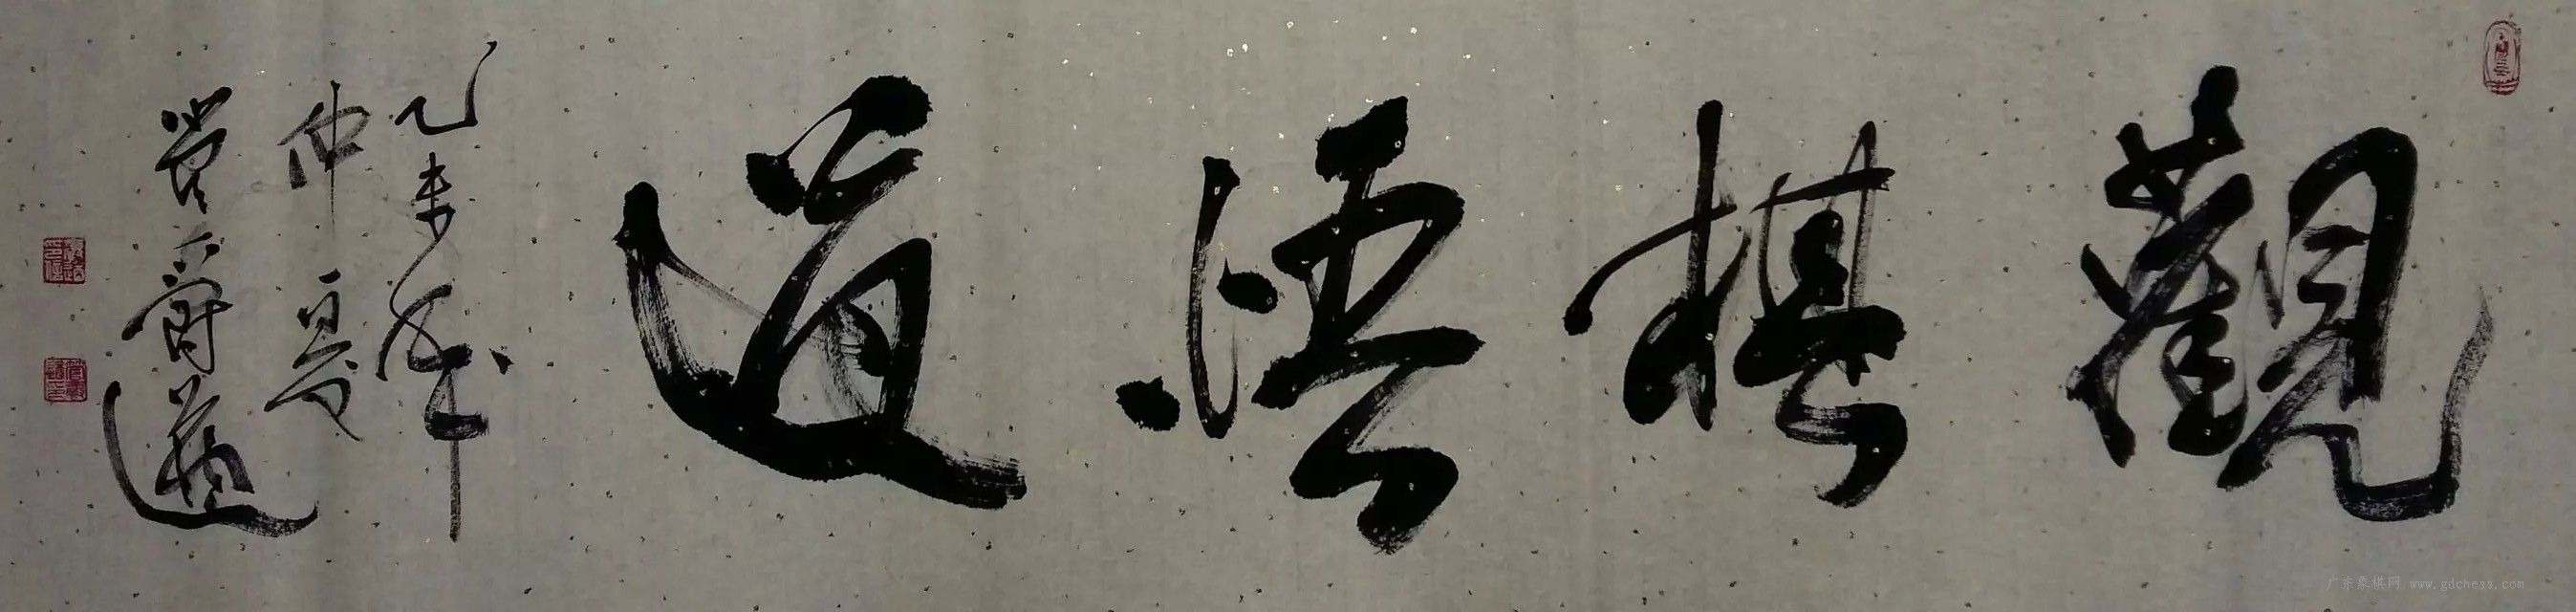 觀棋悟道
乙未年
仲夏
曾爵
广东象棋网 www.gdchess.com